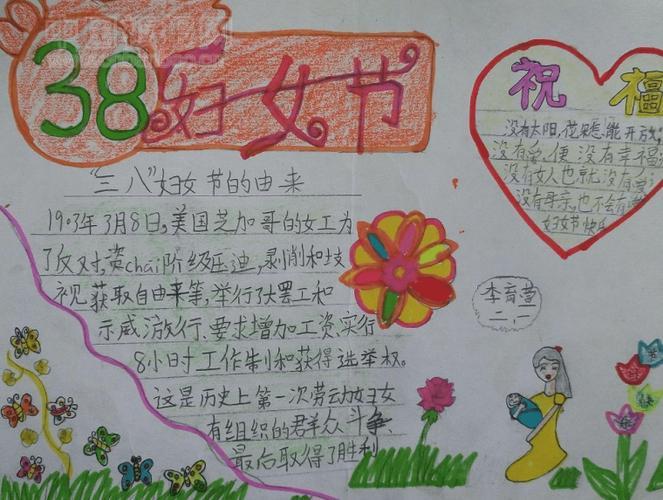 38妇女节
"三八"妇女节的由来
1903年3月8日,美国芝加哥的女工为
了反对,资chǎi阶级压迪,剥削和歧
视获取自由来等,举行了大罢工和
示威游行、要求增加工资,实行
8小日寸工作制和获得选举权。
这是历史上第一次劳动妇女
有组织的群众斗争、
最后取得了胜利
祝福
没有太阳,花朵 能开放,
没有爱,便没有幸福
没有女人也就没有
没有母亲,也不会有
妇女节快乐
李育萱
二、一